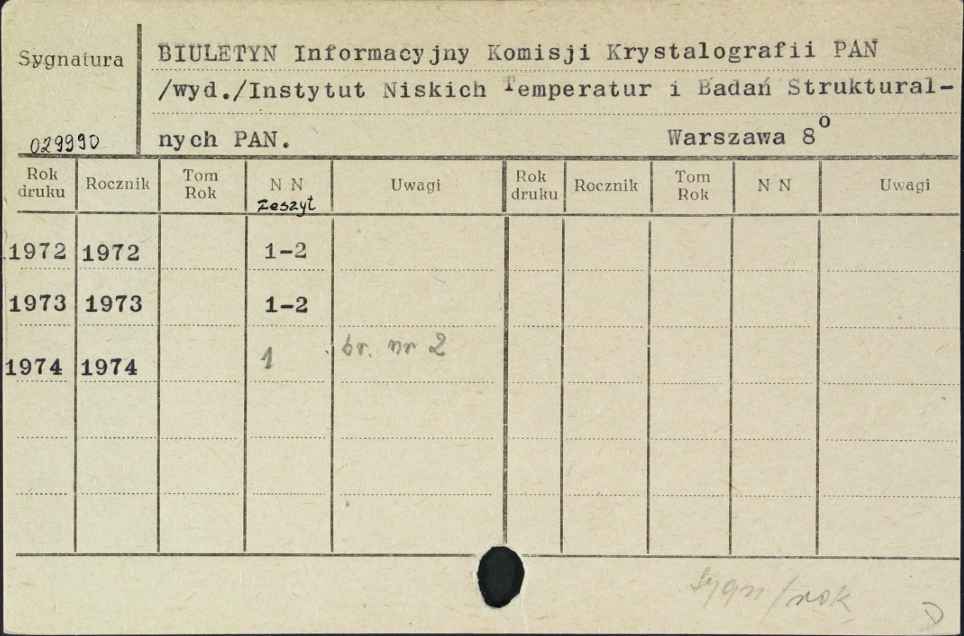 Sygnatura
BIULETYN Informacyjny Komisji Krystalografii PAN
/wyd./Instytut Niskich Temperatur i Badań Struktural-
029990
nych PAN. Warszawa 8º
Rok druku Rocznik Tom Rok N N Uwagi Rok druku Rocznik Tom Rok N N Uwagi
zeszyt
1972 1972 1-2
1973 1973 1-2
1974 1974 1 br. nr 2
Sygn/rok
D